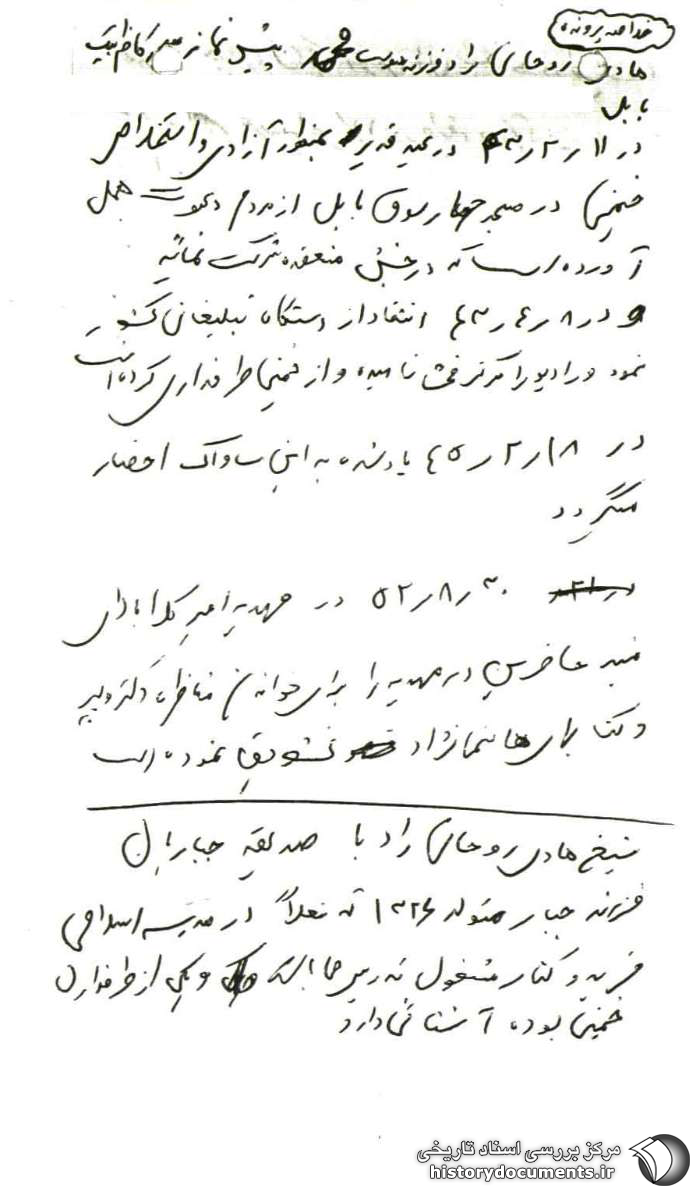 خلاصه پرونده
هادی روحانی راد فرزند یوسف پیش نماز مسجد کاظم بیک
بابل
در ۱۱ر۲ر۴۳ در عید غدیر بمنظور آزادی و استخلاص
خمینی در مسجد چهارسوق بابل از مردم دعوت بعمل
آورده است که در جشن منعقده شرکت نمائید
و در ۸ر۴ر۴۳ انتقاد از دستگاه تبلیغاتی کشور
نموده و رادیو را مرکز فحش نامیده و از خمینی طرفداری کرده است
در ۱۸ر۲ر۴۵ یادشده به این ساواک احضار
میگردد
۳۰ر۸ر۵۲ در مهدیه امیرکلا بالای
منبر حاضرین در مهدیه را برای خواندن مناظره دکتر و پیر
و کتابهای هاشمی نژاد تشویق نموده است
شیخ هادی روحانی راد با صدیقه
فرزند جبار متولد ۱۳۲۶ که فعلاً در مدرسه اسلامی
مشغول تدریس میباشد و یکی از طرفداران
خمینی بوده آشنائی دارد
مرکز بررسی اسناد تاریخی
historydocuments.ir